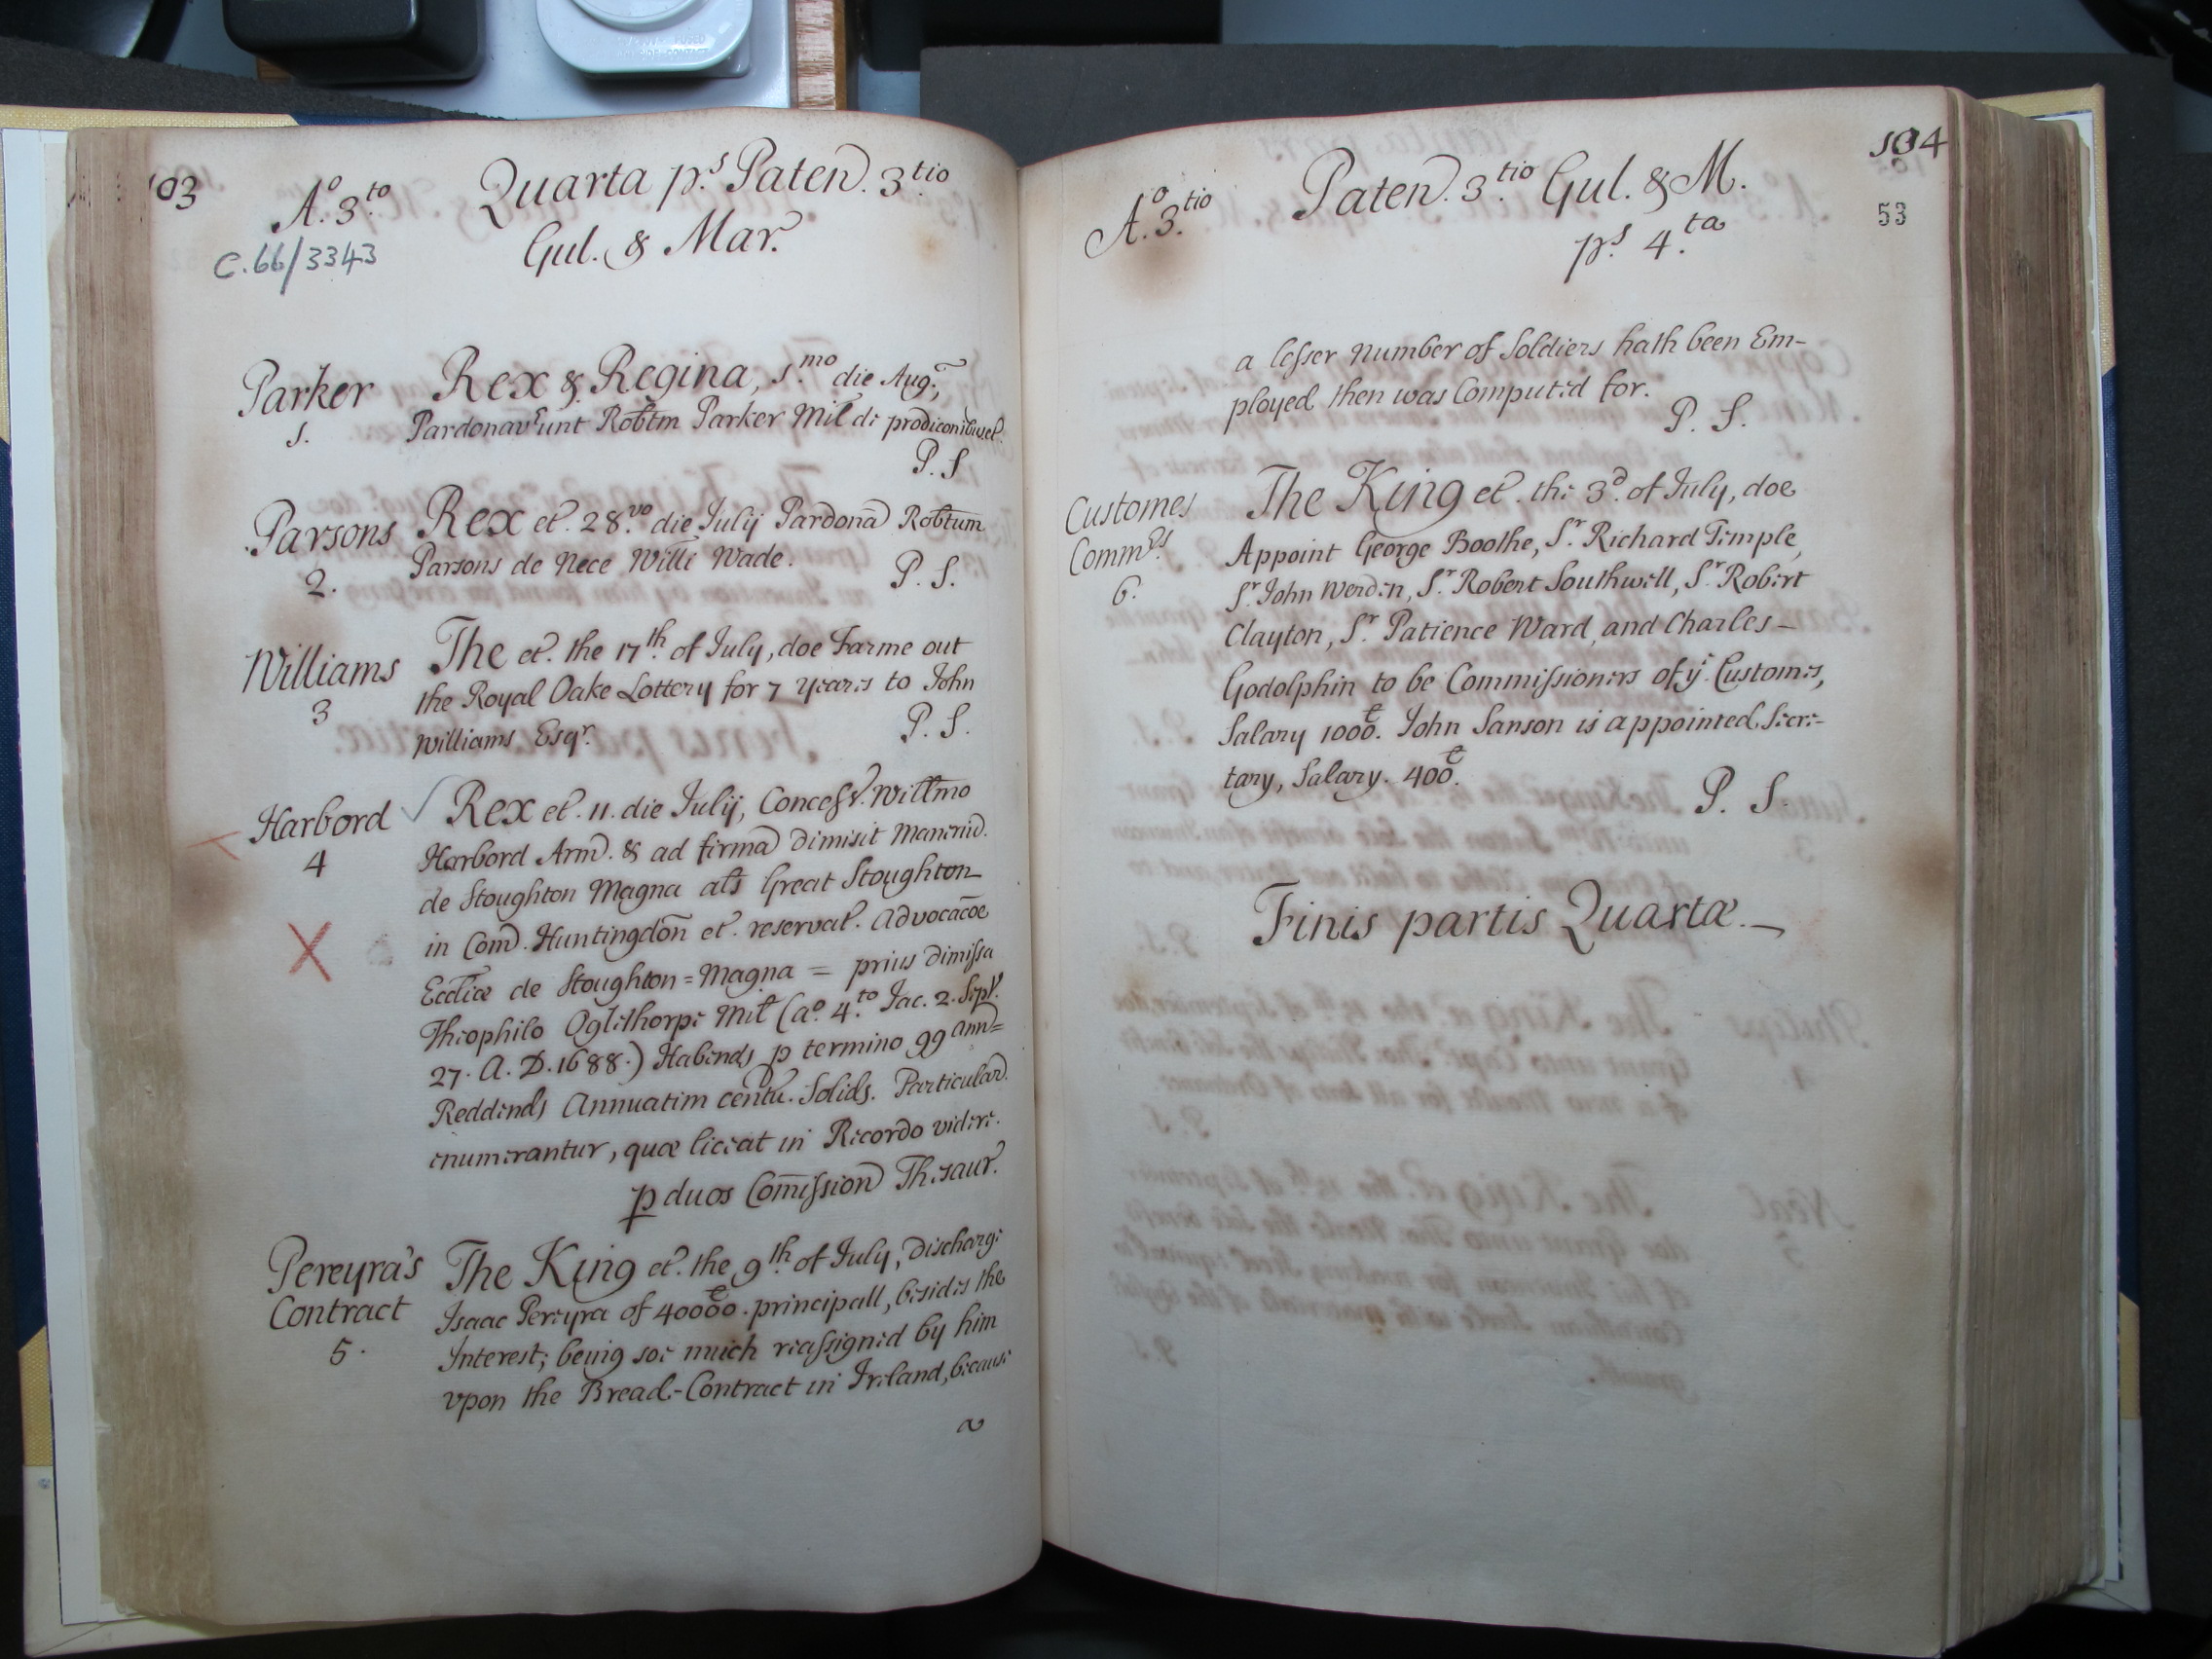 103
A.º 3.to Quarta p.s Paten. 3.tio
Gul. & Mar.
C.66/3343
Parker
1.
Rex & Regina, 1.mo die Aug.,
Pardonaverunt Robtm Parker Mil de prodiconibus et.
P. S
Parsons
2.
Rex et. 28.vo die Julij Pardona Robtum
Parsons de Nece Willi Wade.
P. S.
Williams
3
The et. the 17th. of July, doe Farme out
the Royal Oake Lottery for 7 yeares to John
Williams Esqr.
P. S.
Harbord
4
Rex et. 11. die Julij, Concess. Willmo
Harbord Arm. & ad firma dimisit Maneriu.
de Stoughton Magna als Great Stoughton
in Com. Huntingdon et. reservat. Advocacoe
Ecclie de Stoughton=Magna = prius dimissa
Theophilo Oglethorpe Mil (aº. 4.to Jac. 2. Sept.
27. A. D. 1688.) Habends p termino 99 ann=
Reddends Annuatim centu. Solids. Particular.
enumerantur, quæ liceat in Recordo videre.
p duos Comission Thesaur.
Pereyra's
Contract
5.
The King et. the 9th. of July, discharge
Isaac Pereyra of 40000. principall, besides the
Interest; being soe much reassigned by him
vpon the Bread-Contract in Ireland, because
a
104
53
A.º 3.tio Paten. 3.tio Gul. & M.
p.s 4.ta
a lesser number of Soldiers hath been Em-
ployed then was Computed for.
P. S.
Customes
Comm.rs
6.
The King et. the 3d. of July, doe
Appoint George Boothe, Sr. Richard Temple,
Sr. John Werden, Sr. Robert Southwell, Sr. Robert
Clayton, Sr. Patience Ward, and Charles-
Godolphin to be Commissioners of ye. Customes,
Salary 1000. John Sanson is appointed Secre-
tary, Salary. 400.
P. S.
Finis partis Quartæ.-